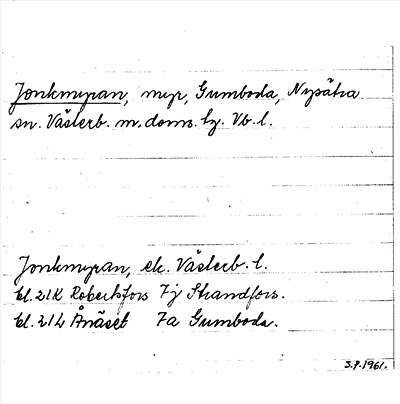 Jonkmyran, myr, Gumboda, Nysätra
sn. Västerb. m. doms. lg. Vb. l.
Jonkmyran, ek. Västerb. l.
bl. 21K Robertsfors 7j Strandfors.
bl. 21L Ånäset 7a Gumboda.
S.P. 1961.